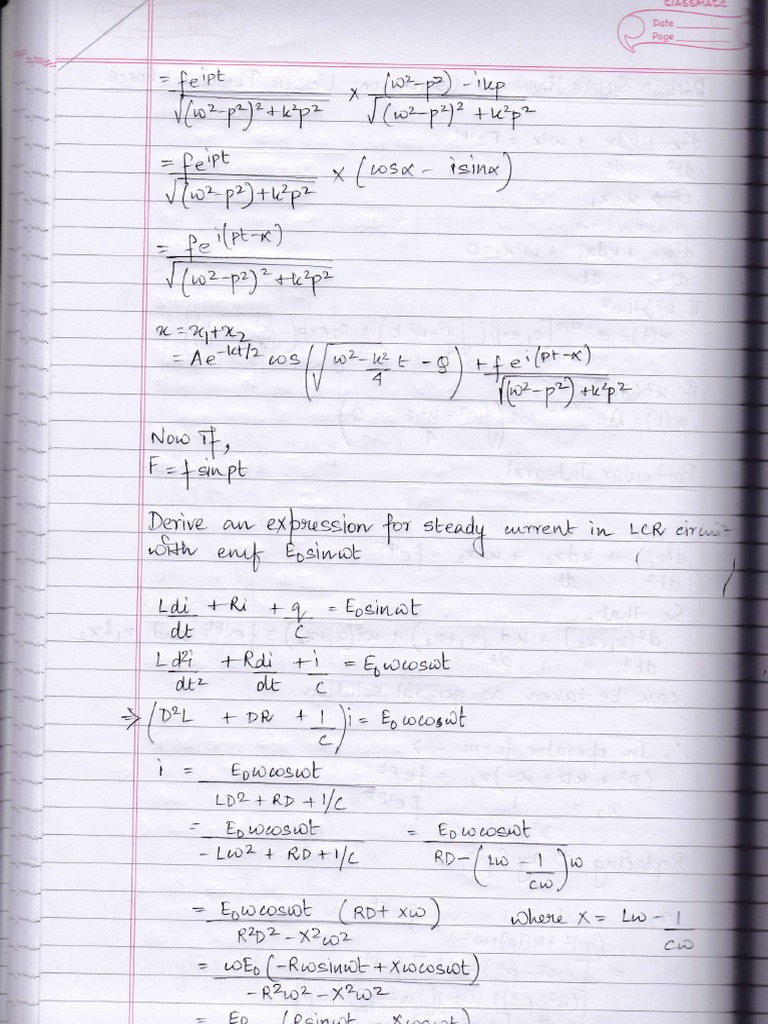 CLASSMATE
Date
Page
= fe^ipt / √((ω²-p²)² + k²p²) × (ω²-p²) - ikp / √((ω²-p²)² + k²p²)
= fe^ipt / √((ω²-p²) + k²p²) × (cosα - isinα)
= fe^i(pt-α) / √((ω²-p²)² + k²p²)
x = x₁+x₂
= Ae^-kt/2 cos(√(ω² - k²/4) t - Q) + fe^i(pt-α) / √((ω²-p²) + k²p²)
Now if,
F = f sinpt
Derive an expression for steady current in LCR circuit
with emf E₀sinωt
Ldi/dt + Ri + q/C = E₀sinωt
Ld²i/dt² + Rdi/dt + i/C = E₀ωcosωt
⇒ (D²L + DR + 1/C) i = E₀ωcosωt
i = E₀ωcosωt / LD² + RD + 1/C
= E₀ωcosωt / -Lω² + RD + 1/C = E₀ωcosωt / RD - (Lω - 1/Cω)ω
= E₀ωcosωt (RD + Xω) / R²D² - X²ω² where X = Lω - 1/Cω
= ωE₀(-Rωsinωt + Xωcosωt) / -R²ω² - X²ω²
= E₀ (Rsinωt - Xcosωt)